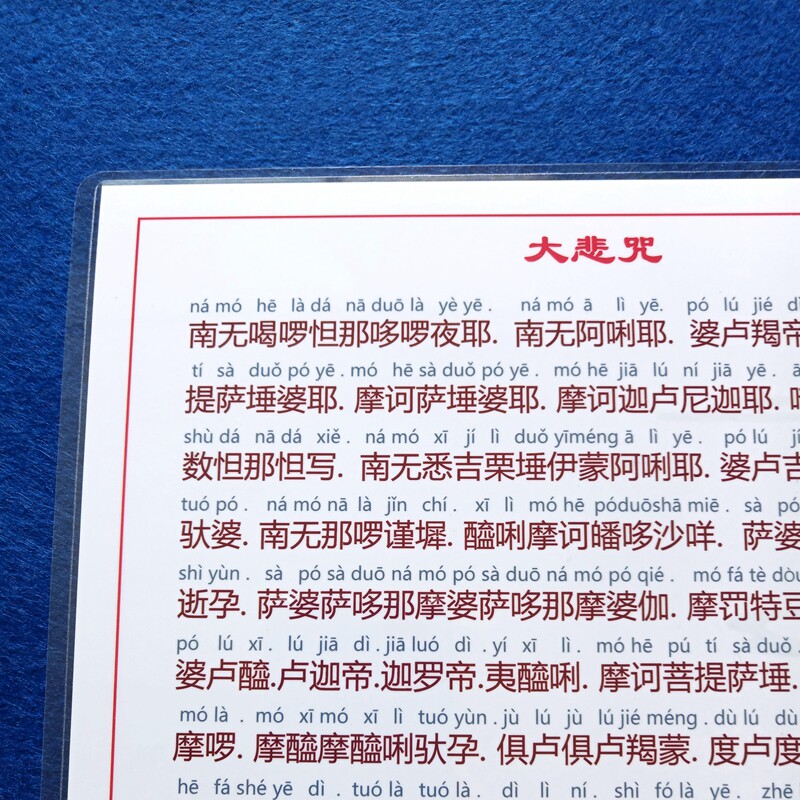 大悲咒
ná mó hē là dá nā duō là yè yē . ná mó ā lì yē. pó lú jié dì
南无喝啰怛那哆啰夜耶. 南无阿唎耶. 婆卢羯帝
tí sà duǒ pó yē . mó hē sà duǒ pó yē . mó hē jiā lú ní jiā yē .
提萨埵婆耶. 摩诃萨埵婆耶. 摩诃迦卢尼迦耶.
shù dá nā dá xiě . ná mó xī jí lì duǒ yī méng ā lì yē . pó lú jí
数怛那怛写. 南无悉吉栗埵伊蒙阿唎耶. 婆卢吉
tuó pó . ná mó nā là jǐn chí . xī lì mó hē pó duō shā miē . sà pó
驮婆. 南无那啰谨墀. 醯唎摩诃皤哆沙咩. 萨婆
shì yùn . sà pó sà duō ná mó pó sà duō ná mó pó qié . mó fá tè dòu
逝孕. 萨婆萨哆那摩婆萨哆那摩婆伽. 摩罚特豆
pó lú xī . lú jiā dì . jiā luó dì . yí xī lì . mó hē pú tí sà duǒ .
婆卢醯.卢迦帝.迦罗帝.夷醯唎. 摩诃菩提萨埵.
mó là . mó xī mó xī lì tuó yùn . jù lú jù lú jié méng . dù lú dù
摩啰. 摩醯摩醯唎驮孕. 俱卢俱卢羯蒙. 度卢度
hē fá shé yē dì . tuó là tuó là . dì lì ní . shì fó là yē . zhē